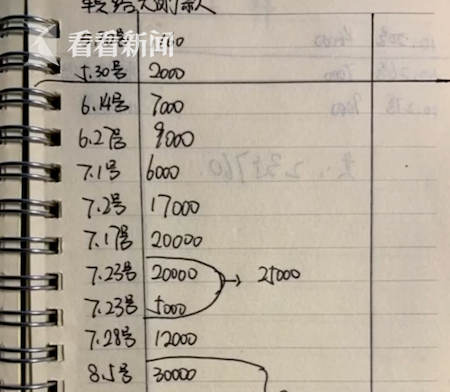 转给
款
看看新闻
5.30号 2000
6.14号 7000
6.27号 9000
7.1号 6000
7.2号 17000
7.17号 20000
7.23号 20000 → 25000
7.23号 5000
7.28号 12000
8.5号 30000